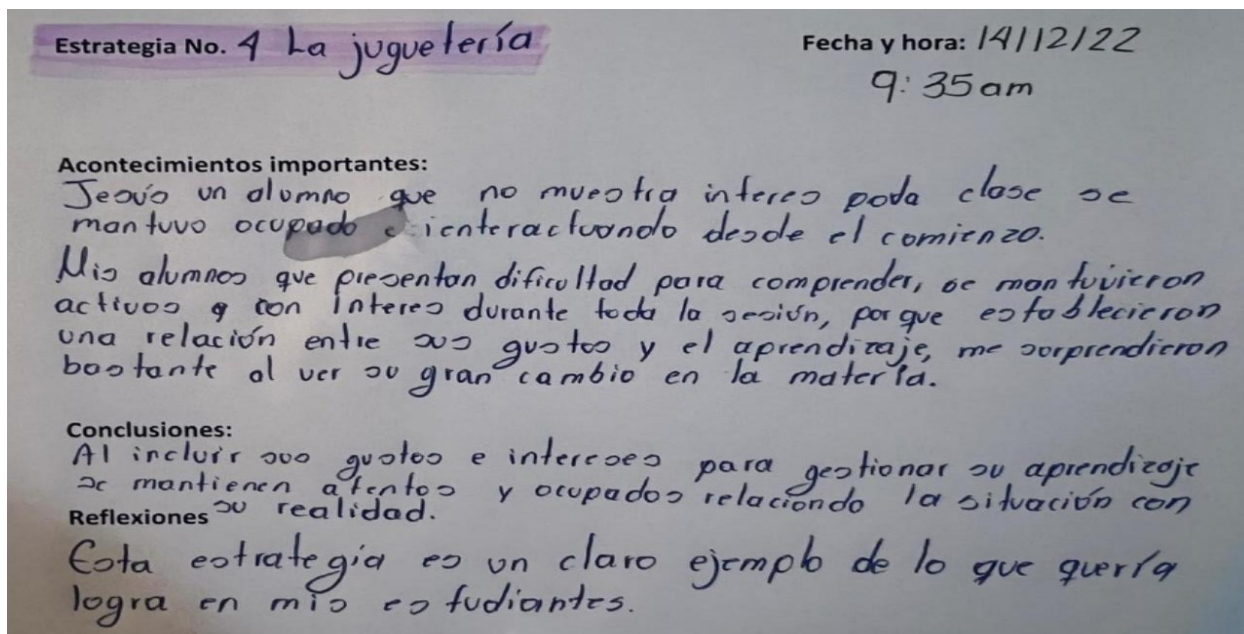 Estrategia No. 4 La juguetería
Fecha y hora: 14/12/22
9:35am
Acontecimientos importantes:
Jesús un alumno que no muestra interes poda clase se
mantuvo ocupado e ienteractuando desde el comienzo.
Mis alumnos que presentan dificultad para comprender, se mantuvieron
activos y con interes durante toda la sesión, porque establecieron
una relación entre sus gustos y el aprendizaje, me sorprendieron
bastante al ver su gran cambio en la materia.
Conclusiones:
Al incluir sus gustos e intereses para gestionar su aprendizaje
se mantienen atentos y ocupados relaciondo la situación con
su realidad.
Reflexiones
Esta estrategia es un claro ejemplo de lo que quería
logra en mis estudiantes.